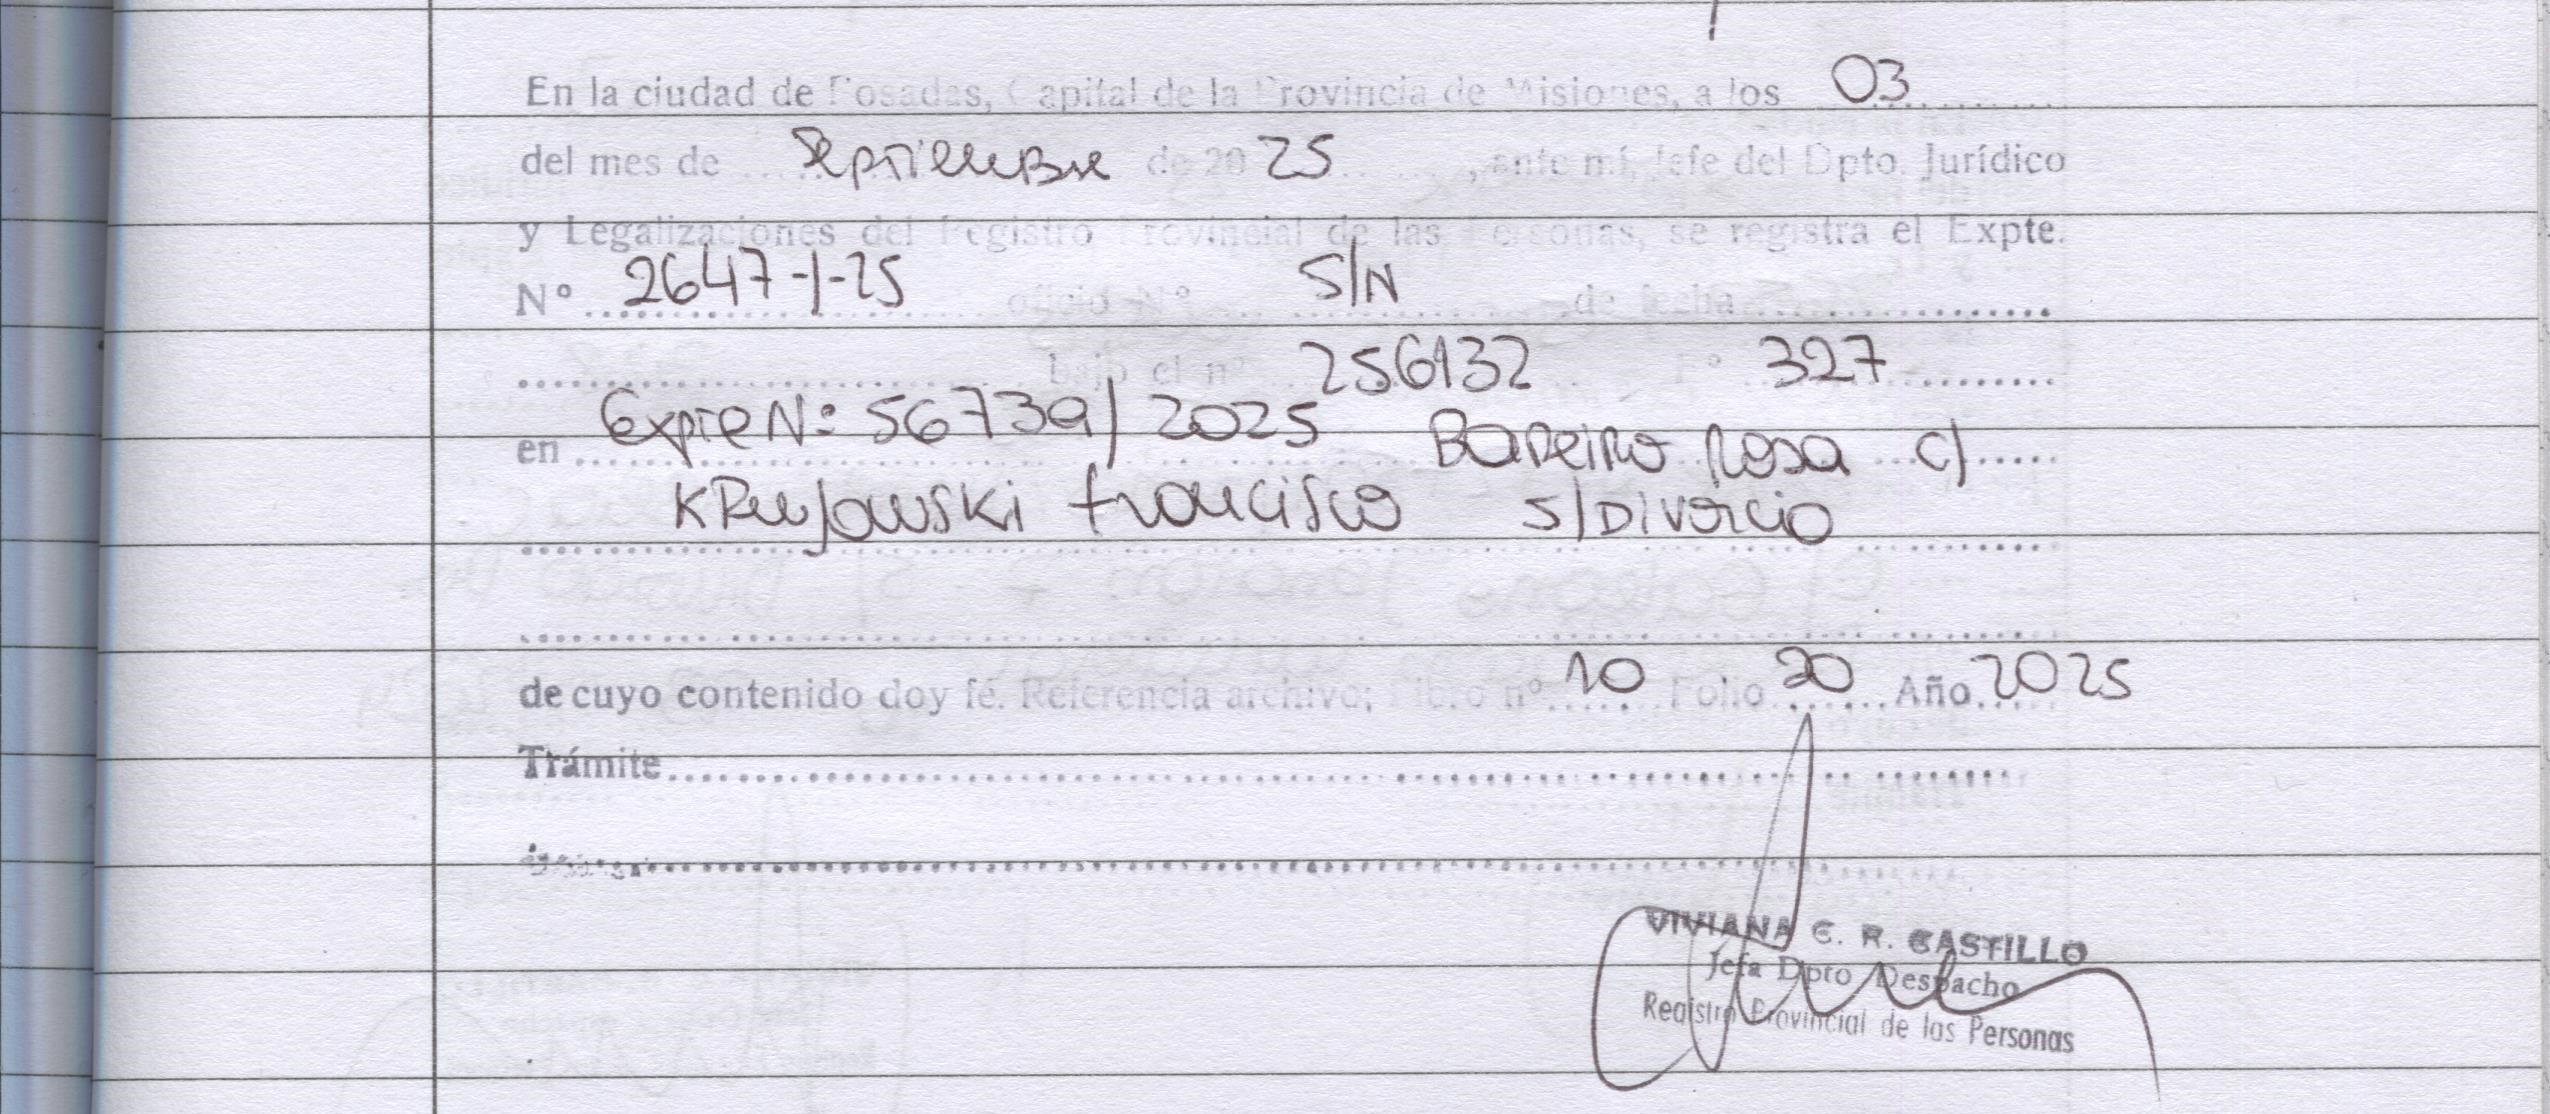 En la ciudad de Posadas, Capital de la Provincia de Misiones, a los 03
del mes de Septiembre de 20 25 , ante mí, Jefe del Dpto. Jurídico
y Legalizaciones del Registro Provincial de las Personas, se registra el Expte.
Nº 2647-1-25 oficio Nº S/N de fecha
bajo el nº 256132 Fº 327
en Expte Nº: 56739/2025 Bareiro Rosa c/
Krujowski Francisco s/Divorcio
de cuyo contenido doy fé. Referencia archivo; Libro nº 10 Folio 20 Año 2025
Trámite
VIVIANA E. R. CASTILLO
Jefa Dpto Despacho
Registro Provincial de las Personas